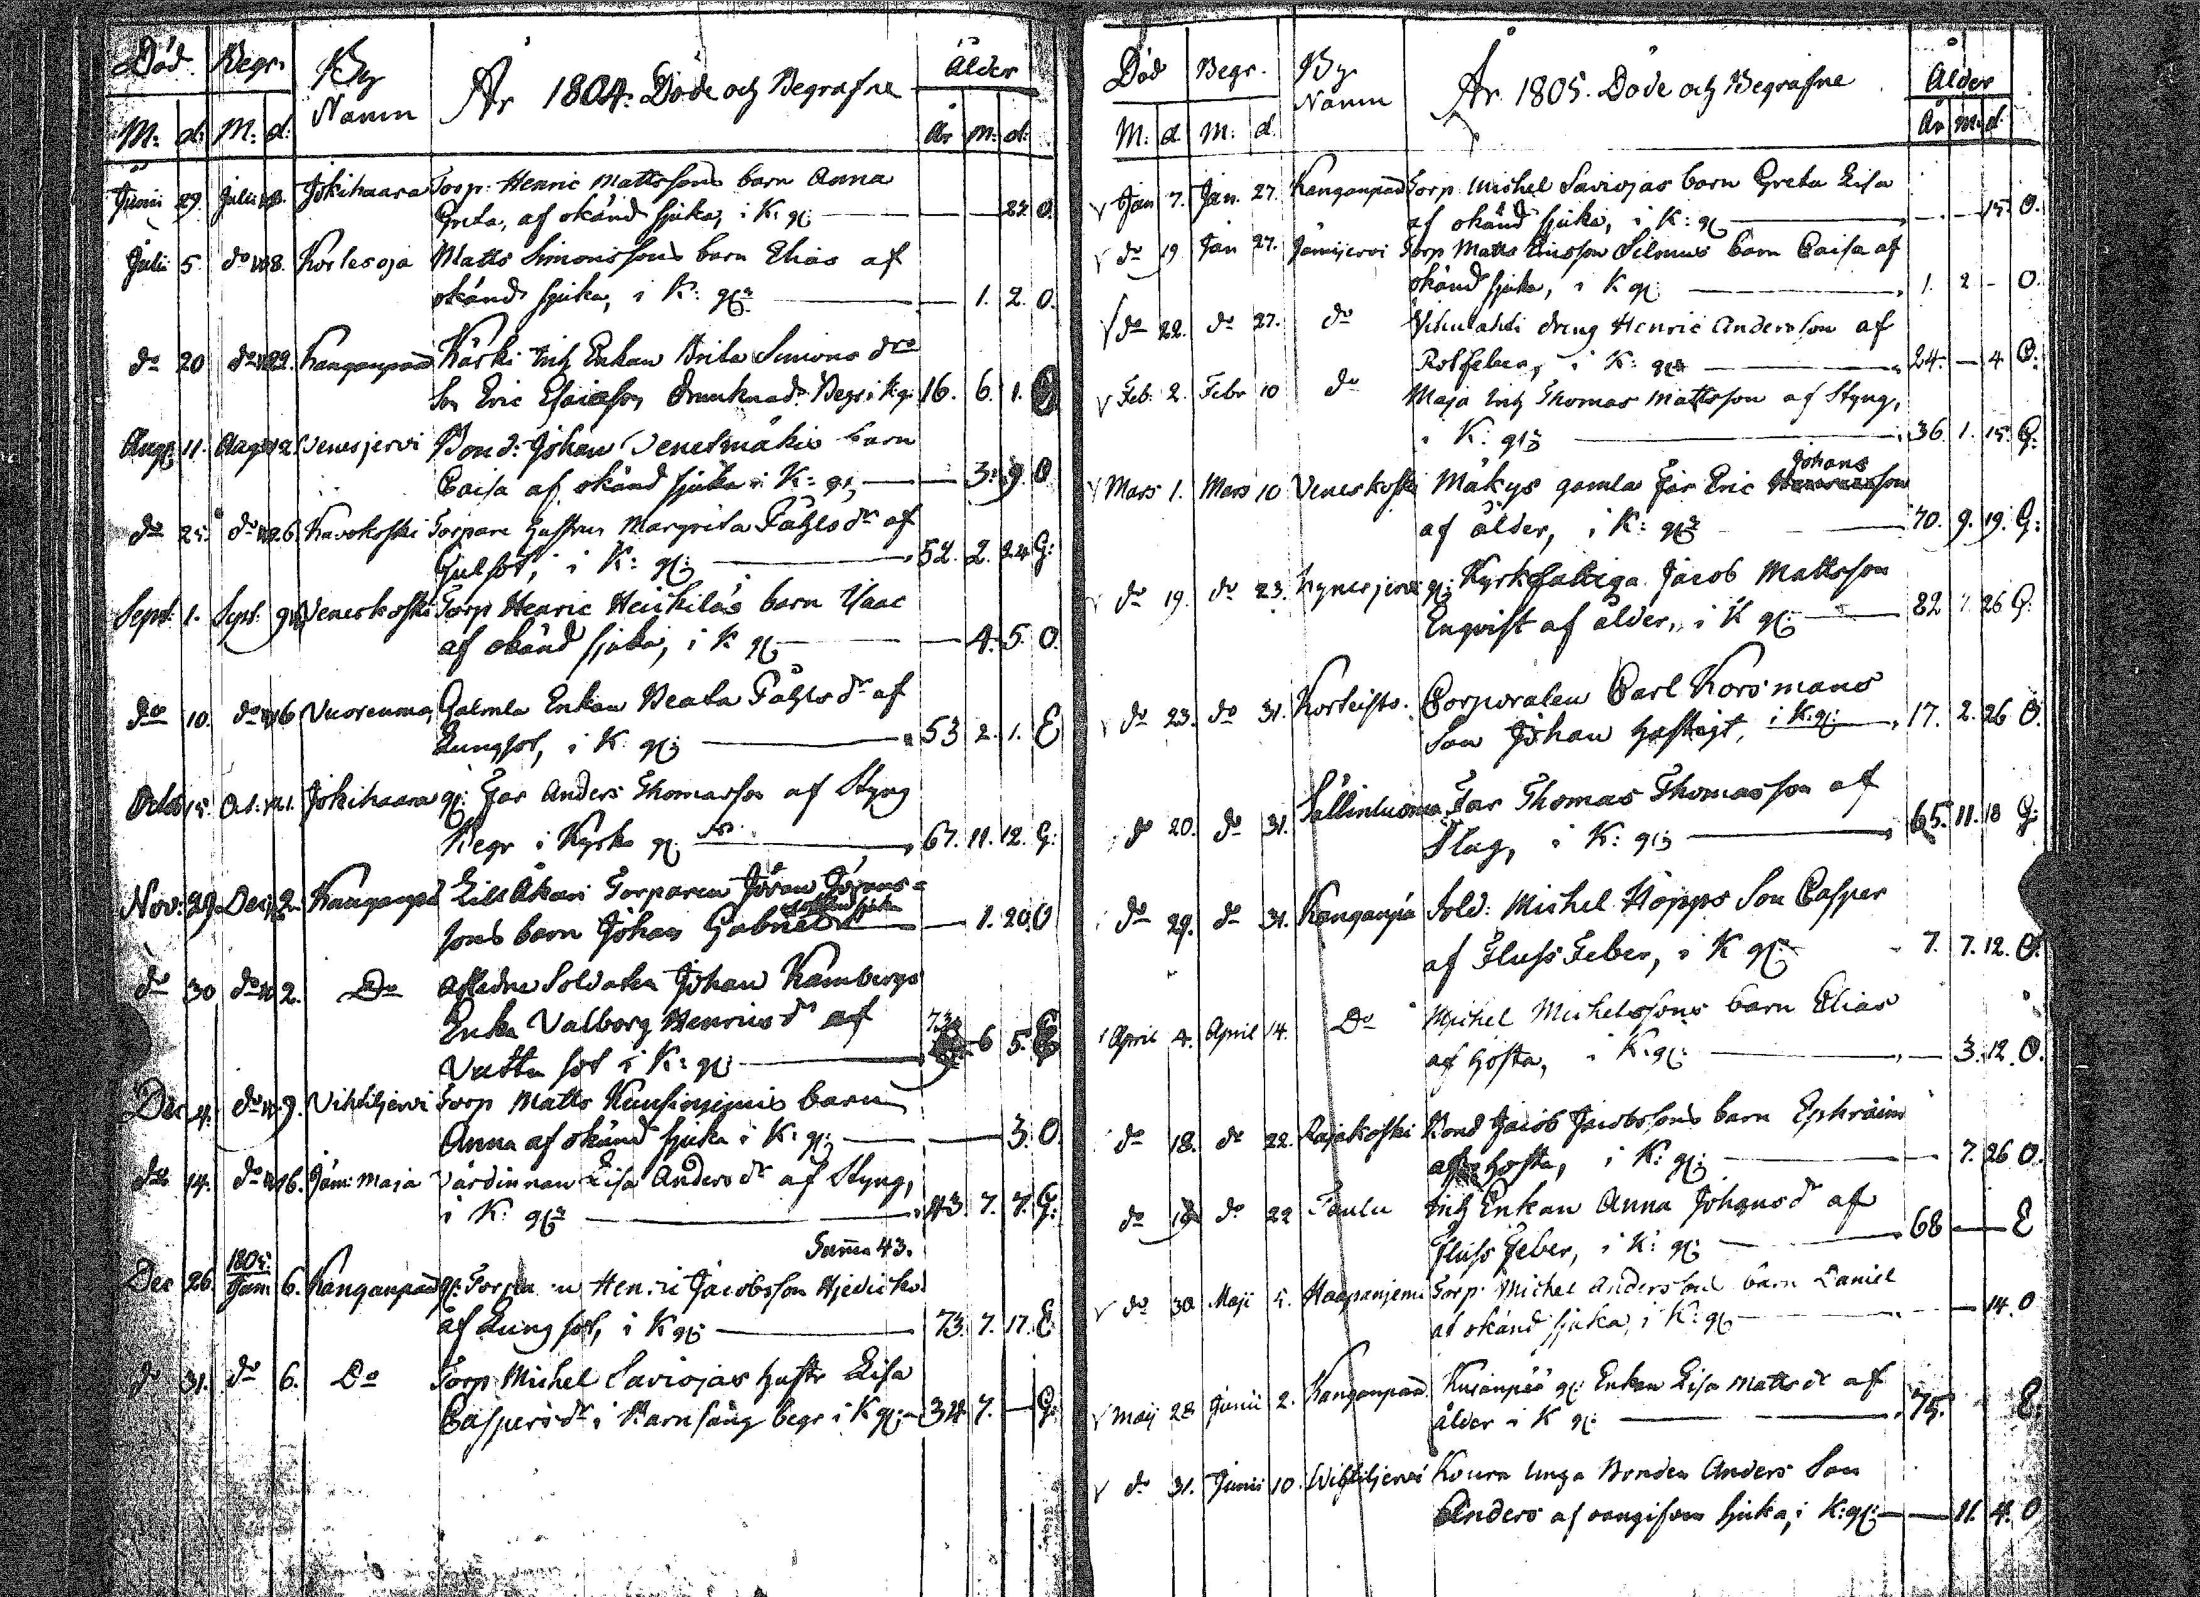 Död. Begr. By Namn År 1804. Döde och Begrafne Ålder
M: d: M: d: År M: d:
Junii 29. Julii 8. Jokihaara Torp. Henric Mattssons barn Anna
Greta, af okänd sjuka, i K: g: — — 23. O.
Julii 5. do 8. Kortesoja Matts Simonssons barn Elias af
okänd sjuka, i K: g: — 1. 2. O.
do 20 do 22. Kanganpää Käski Inh Enkan Brita Simons dr
Son Eric Esaiasson drunknad. Begr. i K.g: 16. 6. 1. O
Aug. 11. Aug. 12. Venesjervi Bond: Johan Venesmäkis barn
Caisa af okänd sjuka i K: g: — 3. 9. O
do 25. do 26. Kavokoski Torpare hustrun Margreta Påhls dr af
Gulsot, i K: g: — 52. 2. 24 G:
Sept. 1. Sept. 9 Veneskoski Torp Henric Heikiläs barn Isaac
af okänd sjuka, i K g: — 4. 5. O.
do 10. do 16 Vuorenmaa Gamla Enkan Beata Påhls dr af
Lungsot, i K. g: — 53 2. 1. E
Octob 15. Oct: 21. Jokihaara g: Far Anders Thomasson af Styng
Begr i Kyrko g: — 67. 11. 12. G:
Nov: 29. Dec. 2. Kanganpää Lill Åkari Torparen Jöran Jörans-
sons barn Johan Gabriel af okänd sjuka — 1. 20. O
do 30 do 2. Do Afledne Soldaten Johan Kambergs
Enka Valborg Henrics dr af
Vattu sot i K: g: — 73. 6 5. E
Dec 4. do 9. Vihtiljervi Torp Matts Kansiniemis barn
Anna af okänd sjuka i K: g: — 3. O.
do 14. do 16. Jäm: Maja Värdinnan Lisa Anders dr af Styng,
i K: g: — 43. 7. 7. G:
Summa 43.
Dec 26. 1805. Jan. 6. Kanganpää g: Torparen Henric Jacobsson Hjedicko
af Lungsot, i K g: — 73. 7. 17. E.
do 31. do 6. Do Torp Michel Saviojas hustr Lisa
Caspers dr i Barnsäng begr i K g: — 34. 7. — G:
Död Begr. By Namn År 1805. Döde och Begrafne Ålder
M: d. M: d. År M: d.
Jan 7. Jan. 27. Kanganpää Torp. Michel Saviojas barn Greta Lisa
af okänd sjuka, i K: g — — 15. O.
do 19 Jan 27. Jämijervi Torp Matts Ericsson barn Caisa af
okänd sjuka, i K g: — 1. 2 - O.
do 22. do 27. do Vihulahti dräng Henric Andersson af
Rötfeber, i K: g: — 24. — 4 O.
Feb. 2. Febr 10 do Maja Inh Thomas Mattsson af Styng,
i K: g: — 36. 1. 15. G:
Mars 1. Mars 10 Veneskoski Mäkys gamla Far Eric Johansson
af ålder, i K: g: — 70. 9. 19. G:
do 19. do 23. Kynesjervi g: Kyrkfattiga Jacob Mattsson
Enqvist af ålder, i K g: — 82 7. 26 G.
do 23. do 31. Corporalen Carl Korsmans
Son Johan hastigt, i K: g: — 17. 2. 26 O.
do 20. do 31. Sällinluoma Far Thomas Thomasson af
Slag, i K: g: — 65. 11. 18 G:
do 29. do 31. Kanganpä Sold: Michel Hopps Son Casper
af Fluss Feber, i K g: - 7. 7. 12. O.
April 4. April 14. Do Michel Michelssons barn Elias
af hosta, i K. g: — 3. 12. O.
do 18. do 22. Rajakoski Bond Jacob Jacobssons barn Ephraim
af hosta, i K: g: — 7. 26 O.
do 18 do 22 Taulu Inh Enkan Anna Johans dr af
Fluss Feber, i K: g: — 68 — E
do 30. Maji 5. Haapaniemi Torp. Michel Anderssons barn Daniel
af okänd sjuka, i K: g — 14. O
Maij 28 Junii 2. Kanganpää. Kuianpää g: Enkan Lisa Matts dr af
ålder i K g: — 75. E.
do 31. Junii 10. Wihtiljervi Koura unga Bonden Anders Son
Anders af sjuka, i K: g: — 11. 4. O